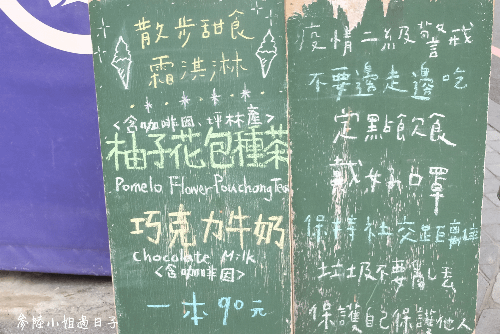 散步甜食
霜淇淋
<含咖啡因、坪林產>
柚子花包種茶
Pomelo Flower Pouchong Tea
巧克力牛奶
Chocolate Milk
<含咖啡因>
一本 90元
疫情二級警戒
不要邊走邊吃
定點飲食
戴好口罩
保持社交距離
垃圾不要亂丟
保護自己保護他人
麥撞小姐過日子